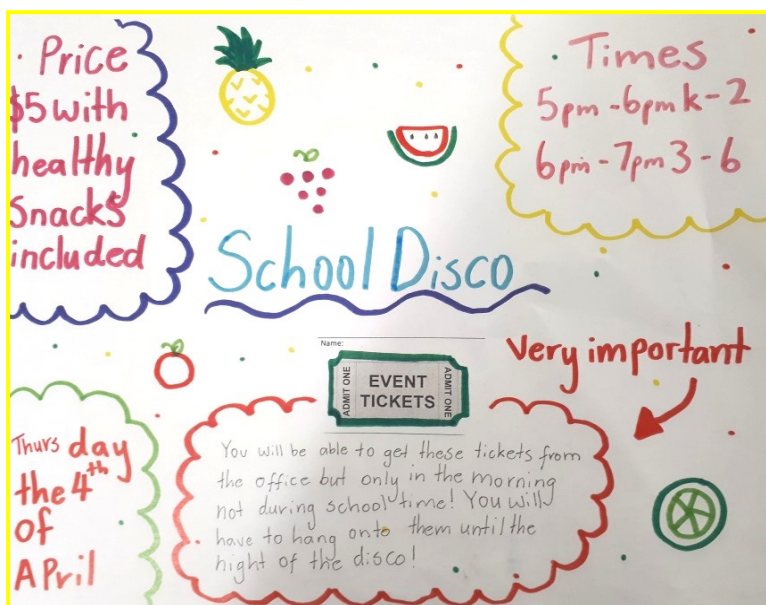 Price
$5 with
healthy
snacks
included
Times
5pm - 6pm k - 2
6pm - 7pm 3 - 6
School Disco
Name:
ADMIT ONE
EVENT
TICKETS
ADMIT ONE
Very important
Thursday
the 4th
of
April
You will be able to get these tickets from
the office but only in the morning
not during school time! You will
have to hang onto them until the
night of the disco!